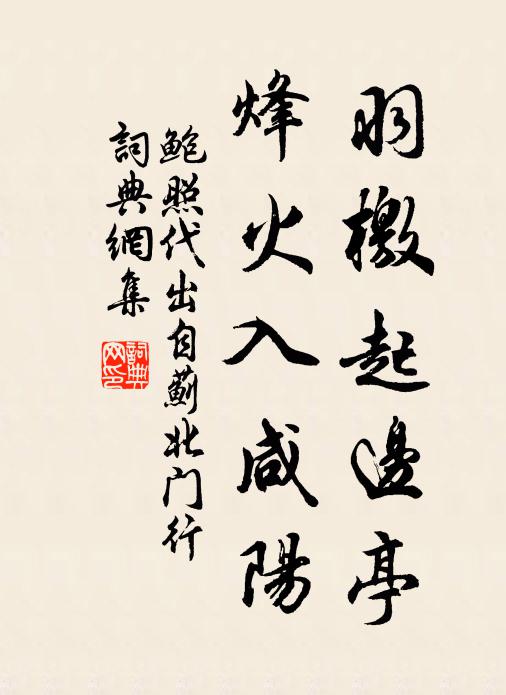 羽檄起邊亭
烽火入咸陽
鮑照代出自薊北门行
詞典網集
詞典
网印